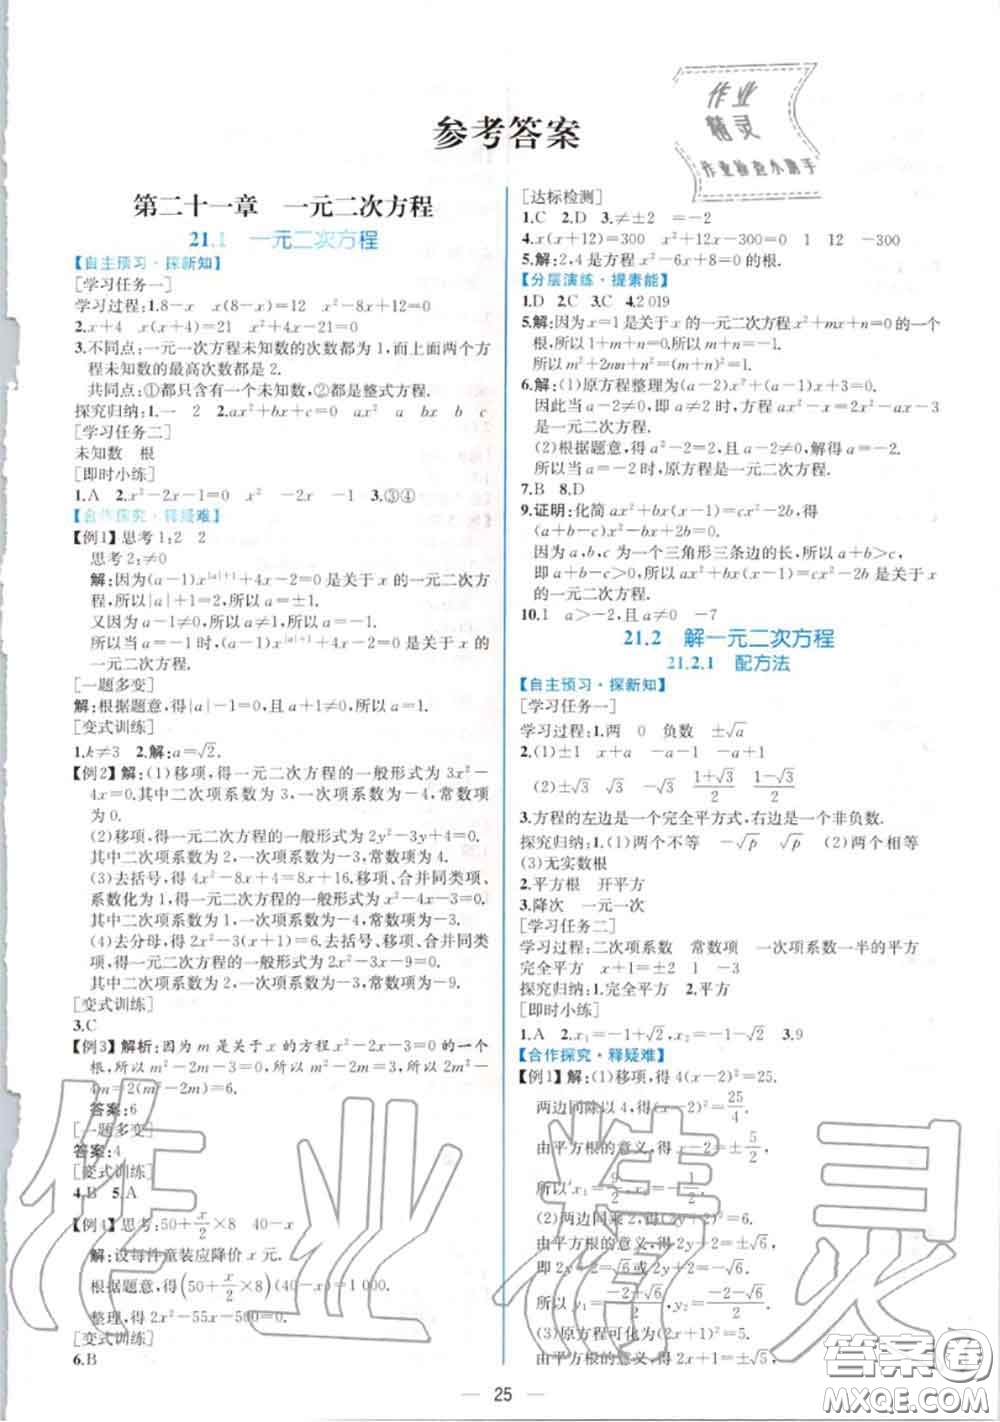 参考答案
作业
精灵
作业检查小助手
第二十一章 一元二次方程
21.1 一元二次方程
【自主预习·探新知】
[学习任务一]
学习过程:1.8-x x(8-x)=12 x²-8x+12=0
2.x+4 x(x+4)=21 x²+4x-21=0
3.不同点:一元一次方程未知数的次数都为1,而上面两个方
程未知数的最高次数都是2.
共同点:①都只含有一个未知数,②都是整式方程.
探究归纳:1.一 2 2.ax²+bx+c=0 ax² a bx b c
[学习任务二]
未知数 根
[即时小练]
1.A 2.x²-2x-1=0 x² -2x -1 3.③④
【合作探究·释疑难】
【例1】思考1:2 2
思考2:≠0
解:因为(a-1)x^{|a|+1}+4x-2=0是关于x的一元二次方
程,所以|a|+1=2,所以a=±1.
又因为a-1≠0,所以a≠1,所以a=-1.
所以当a=-1时,(a-1)x^{|a|+1}+4x-2=0是关于x的
一元二次方程.
[一题多变]
解:根据题意,得|a|-1=0,且a-1≠0,解得a=-1.
[变式训练]
1.k≠3 2.解:a=√2.
【例2】解:(1)移项,得一元二次方程的一般形式为3x²-
4x=0.其中二次项系数为3,一次项系数为-4,常数项
为0.
(2)移项,得一元二次方程的一般形式为2y²-3y+4=0.
其中二次项系数为2,一次项系数为-3,常数项为4.
(3)去括号,得4x²-8x+4=8x+16.移项、合并同类项、
系数化为1,得一元二次方程的一般形式为x²-4x-3=0.
其中二次项系数为1,一次项系数为-4,常数项为-3.
(4)去分母,得2x²-3(x+1)=6.去括号、移项、合并同类
项,得一元二次方程的一般形式为2x²-3x-9=0.
其中二次项系数为2,一次项系数为-3,常数项为-9.
[变式训练]
3.C
【例3】解析:因为m是关于x的方程x²-2x-3=0的一个
根,所以m²-2m-3=0,所以m²-2m=3,所以2m²-
4m=2(m²-2m)=6.
答案:6
[一题多变]
答案:4
[变式训练]
4.B 5.A
【例4】思考:50+x/2×8 40-x
解:设每件童装应降价x元.
根据题意,得(50+x/2×8)(40-x)=1 000.
[变式训练]
6.B
[达标检测]
1.C 2.D 3.≠±2 =-2
4.x(x+12)=300 x²+12x-300=0 1 12 -300
5.解:2,4是方程x²-6x+8=0的根.
【分层演练·提素能】
1.D 2.C 3.C 4.2 019
5.解:因为x=1是关于x的一元二次方程x²+mx+n=0的一个
根,所以1+m+n=0,所以m+n=-1,
所以m²+2mn+n²=(m+n)²=1.
6.解:(1)原方程整理为(a-2)x²+(a-1)x+3=0.
因此当a-2≠0,即a≠2时,方程ax²-2x²+ax-x+3
是一元二次方程.
(2)根据题意,得a²-2=2,且a-2≠0,解得a=-2.
所以当a=-2时,原方程是一元二次方程.
7.B 8.D
9.证明:化简ax²+bx+2b=cx²-2b,得
(a+b-c)x²-bx+2b=0.
因为a,b,c为一个三角形三条边的长,所以a+b>c,
即a+b-c>0,所以ax²+bx+2b=cx²-2b是关于x的
一元二次方程.
10.1 a>-2,且a≠0 -7
21.2 解一元二次方程
21.2.1 配方法
【自主预习·探新知】
[学习任务一]
学习过程:1.两 0 负数 ±√a
2.(1)±1 x+a -a-1 -a+1
(2)±√3 ±√3 (1+√3)/2 (1-√3)/2
3.方程的左边是一个完全平方式,右边是一个非负数.
探究归纳:1.(1)两个不等 -√p √p (2)两个相等
(3)无实数根
2.平方根 开平方
3.降次 一元一次
[学习任务二]
学习过程:二次项系数 常数项 一次项系数一半的平方
完全平方 x+1=±2 1 -3
探究归纳:1.完全平方 2.平方
[即时小练]
1.A 2.x₁=-1+√2,x₂=-1-√2 3.9
【合作探究·释疑难】
【例1】解:(1)移项,得4(x-2)²=25.
两边同除以4,得(x-2)²=25/4.
由平方根的意义,得x-2=±5/2,
(2)两边同乘2,得(2y+2)²=6.
由平方根的意义,得2y+2=±√6,
即2y+2=√6或2y+2=-√6.
所以y₁=(-2+√6)/2,y₂=(-2-√6)/2.
(3)原方程可化为(x-2)²=5.
由平方根的意义,得x-2=±√5,
25
答案圈
MXQE.COM
作业精灵